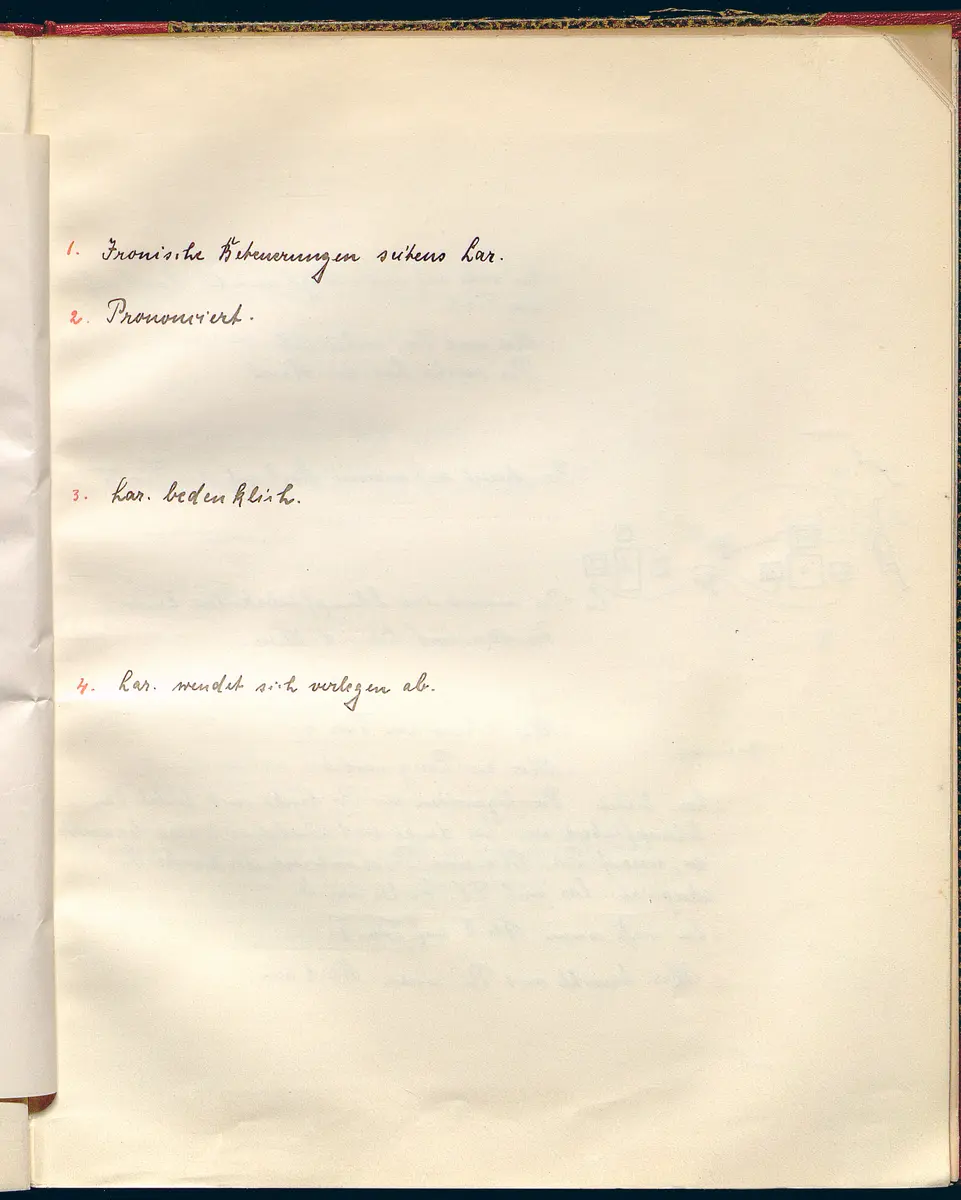 1. Ironische Beteuerungen seitens Lar.
2. Prononciert.
3. Lar. bedenklich.
4. Lar. wendet sich verlegen ab.